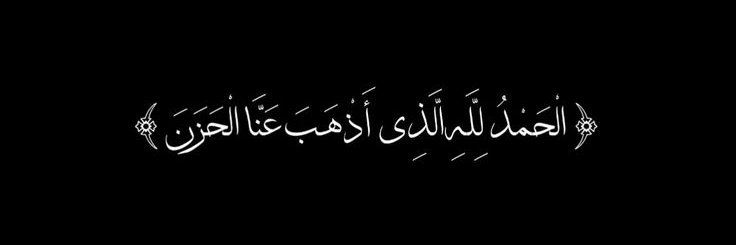 ﴿ الْحَمْدُ لِلَّهِ الَّذِى أَذْهَبَ عَنَّا الْحَزَنَ ﴾